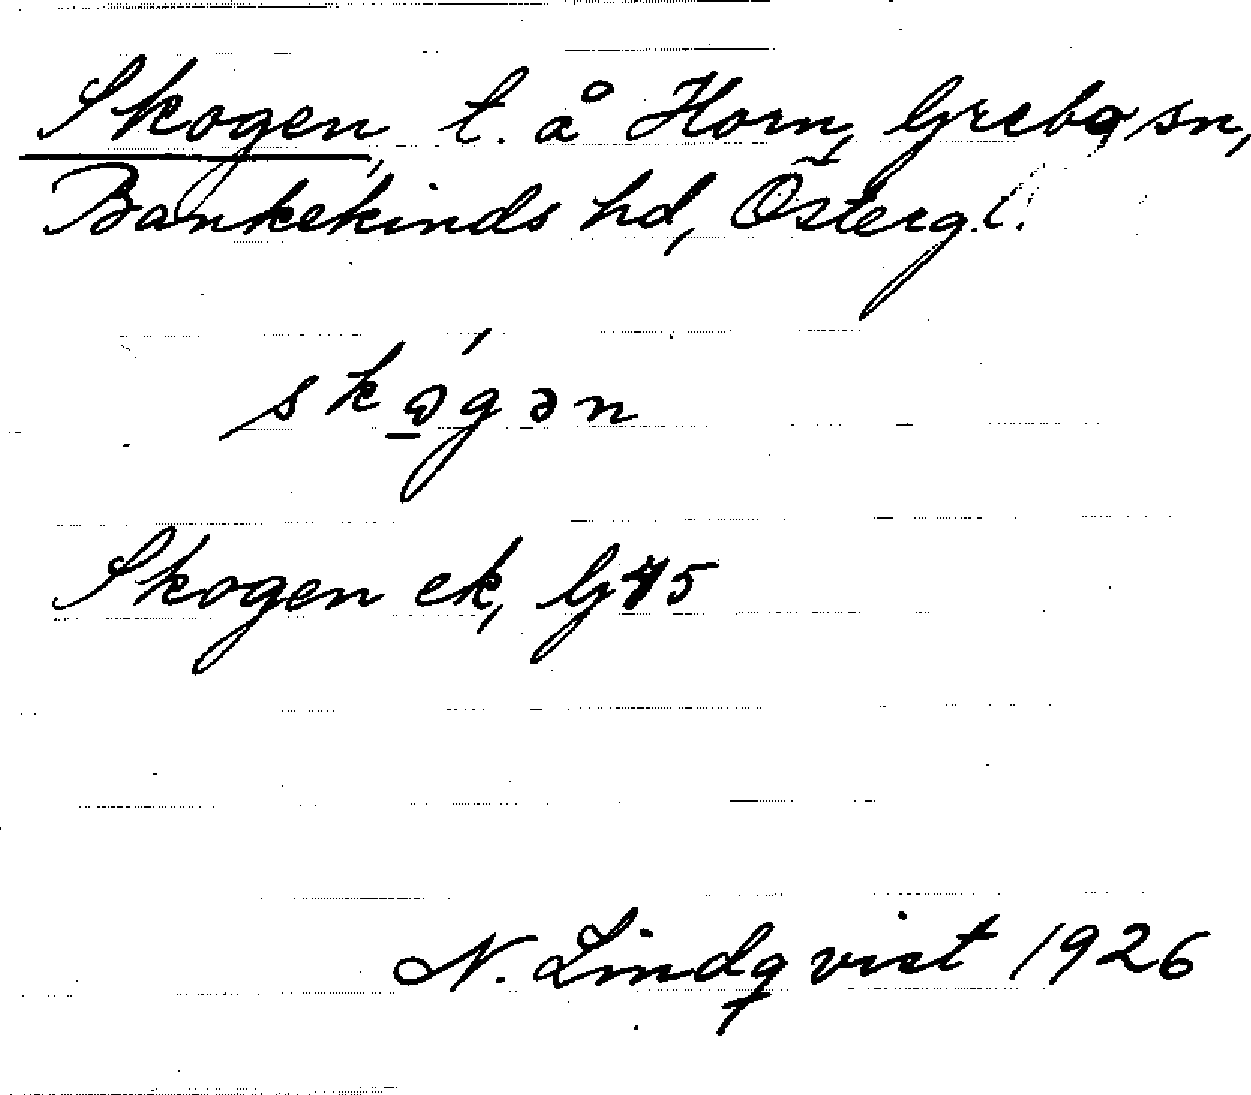 Skogen, t. å Horn, Grebo sn,
Bankekinds hd, Österg.l.
skógən
Skogen ek, G45
N. Lindqvist 1926